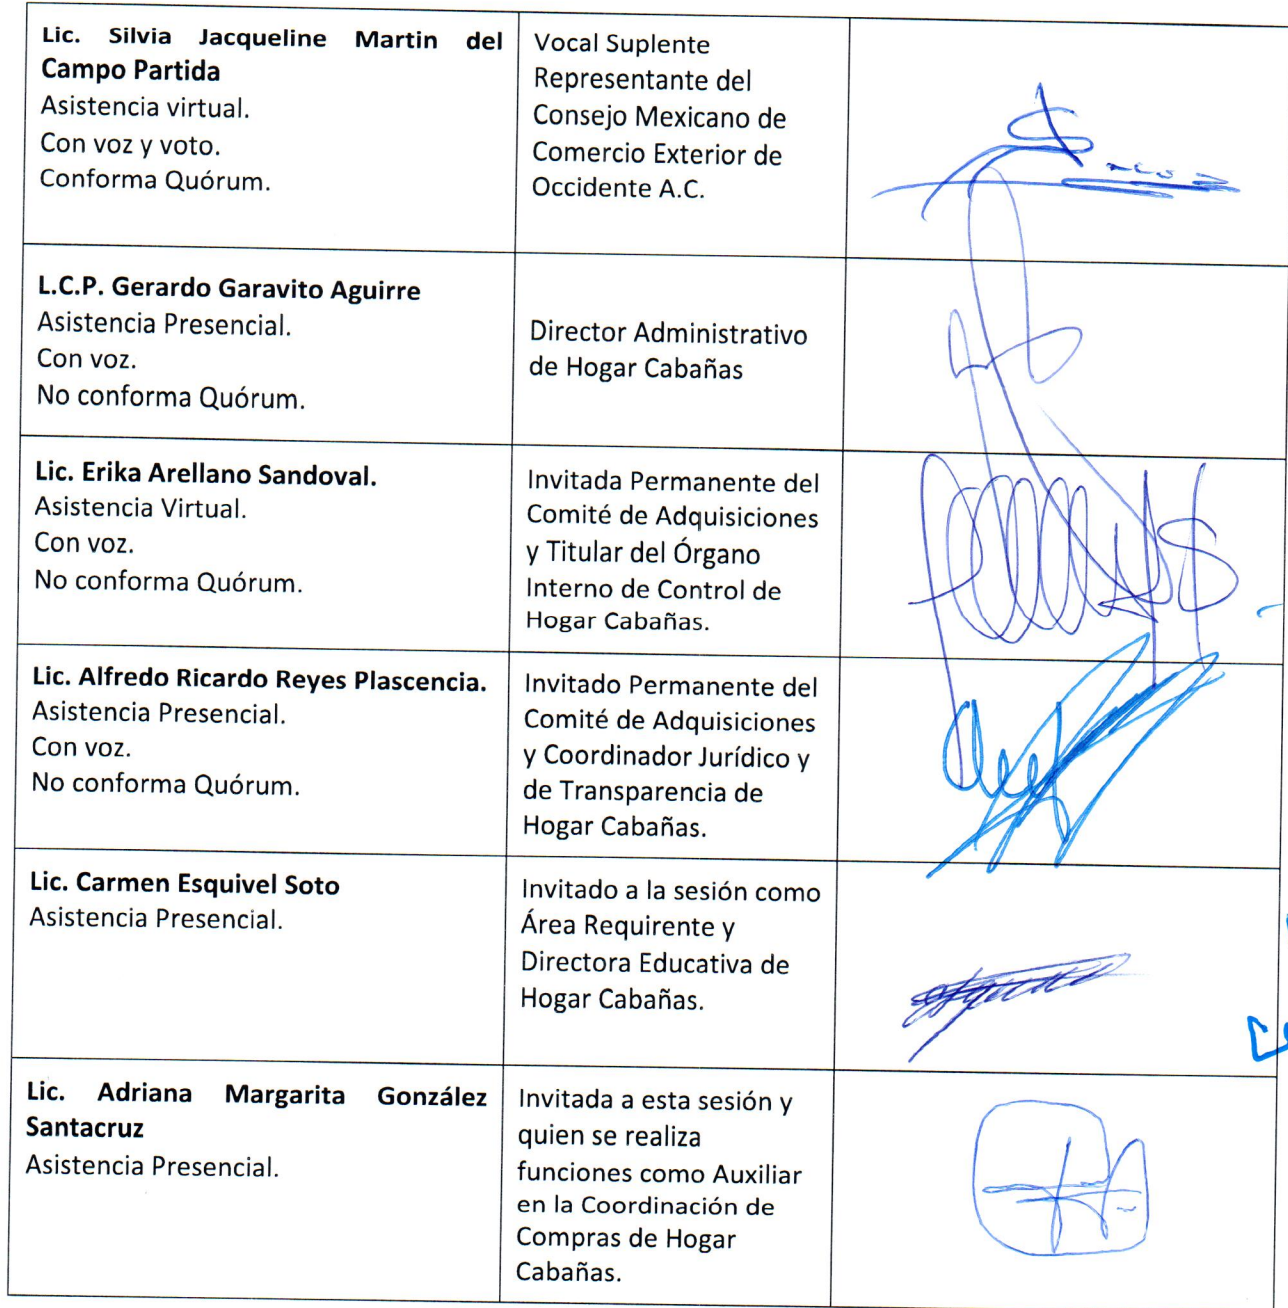 Lic. Silvia Jacqueline Martin del
Campo Partida
Asistencia virtual.
Con voz y voto.
Conforma Quórum.
Vocal Suplente
Representante del
Consejo Mexicano de
Comercio Exterior de
Occidente A.C.
L.C.P. Gerardo Garavito Aguirre
Asistencia Presencial.
Con voz.
No conforma Quórum.
Director Administrativo
de Hogar Cabañas
Lic. Erika Arellano Sandoval.
Asistencia Virtual.
Con voz.
No conforma Quórum.
Invitada Permanente del
Comité de Adquisiciones
y Titular del Órgano
Interno de Control de
Hogar Cabañas.
Lic. Alfredo Ricardo Reyes Plascencia.
Asistencia Presencial.
Con voz.
No conforma Quórum.
Invitado Permanente del
Comité de Adquisiciones
y Coordinador Jurídico y
de Transparencia de
Hogar Cabañas.
Lic. Carmen Esquivel Soto
Asistencia Presencial.
Invitado a la sesión como
Área Requirente y
Directora Educativa de
Hogar Cabañas.
Lic. Adriana Margarita González
Santacruz
Asistencia Presencial.
Invitada a esta sesión y
quien se realiza
funciones como Auxiliar
en la Coordinación de
Compras de Hogar
Cabañas.